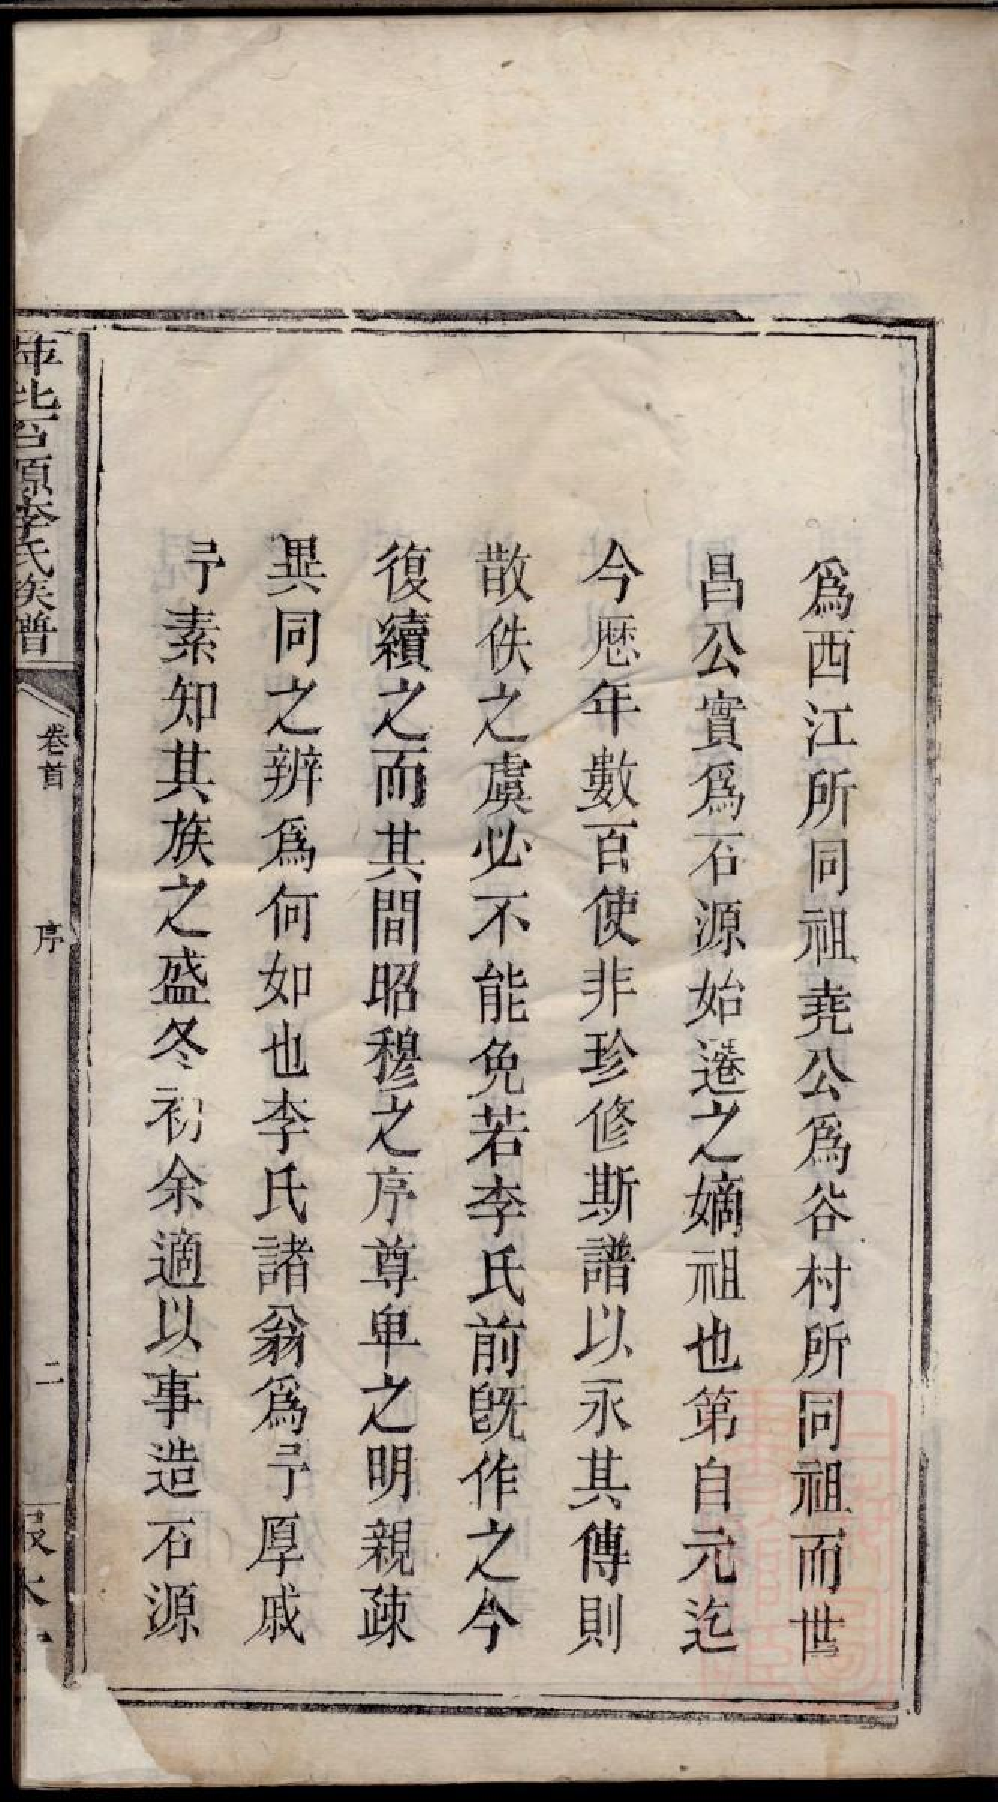 爲西江所同祖堯公爲谷村所同祖而世
昌公實爲石源始遷之嫡祖也第自元迄
今歷年數百使非珍修斯譜以永其傳則
散佚之虞必不能免若李氏前既作之今
復續之而其間昭穆之序尊卑之明親疎
異同之辨爲何如也李氏諸翁爲予厚戚
予素知其族之盛冬初余適以事造石源
萍北石源李氏族譜
卷首
序
二